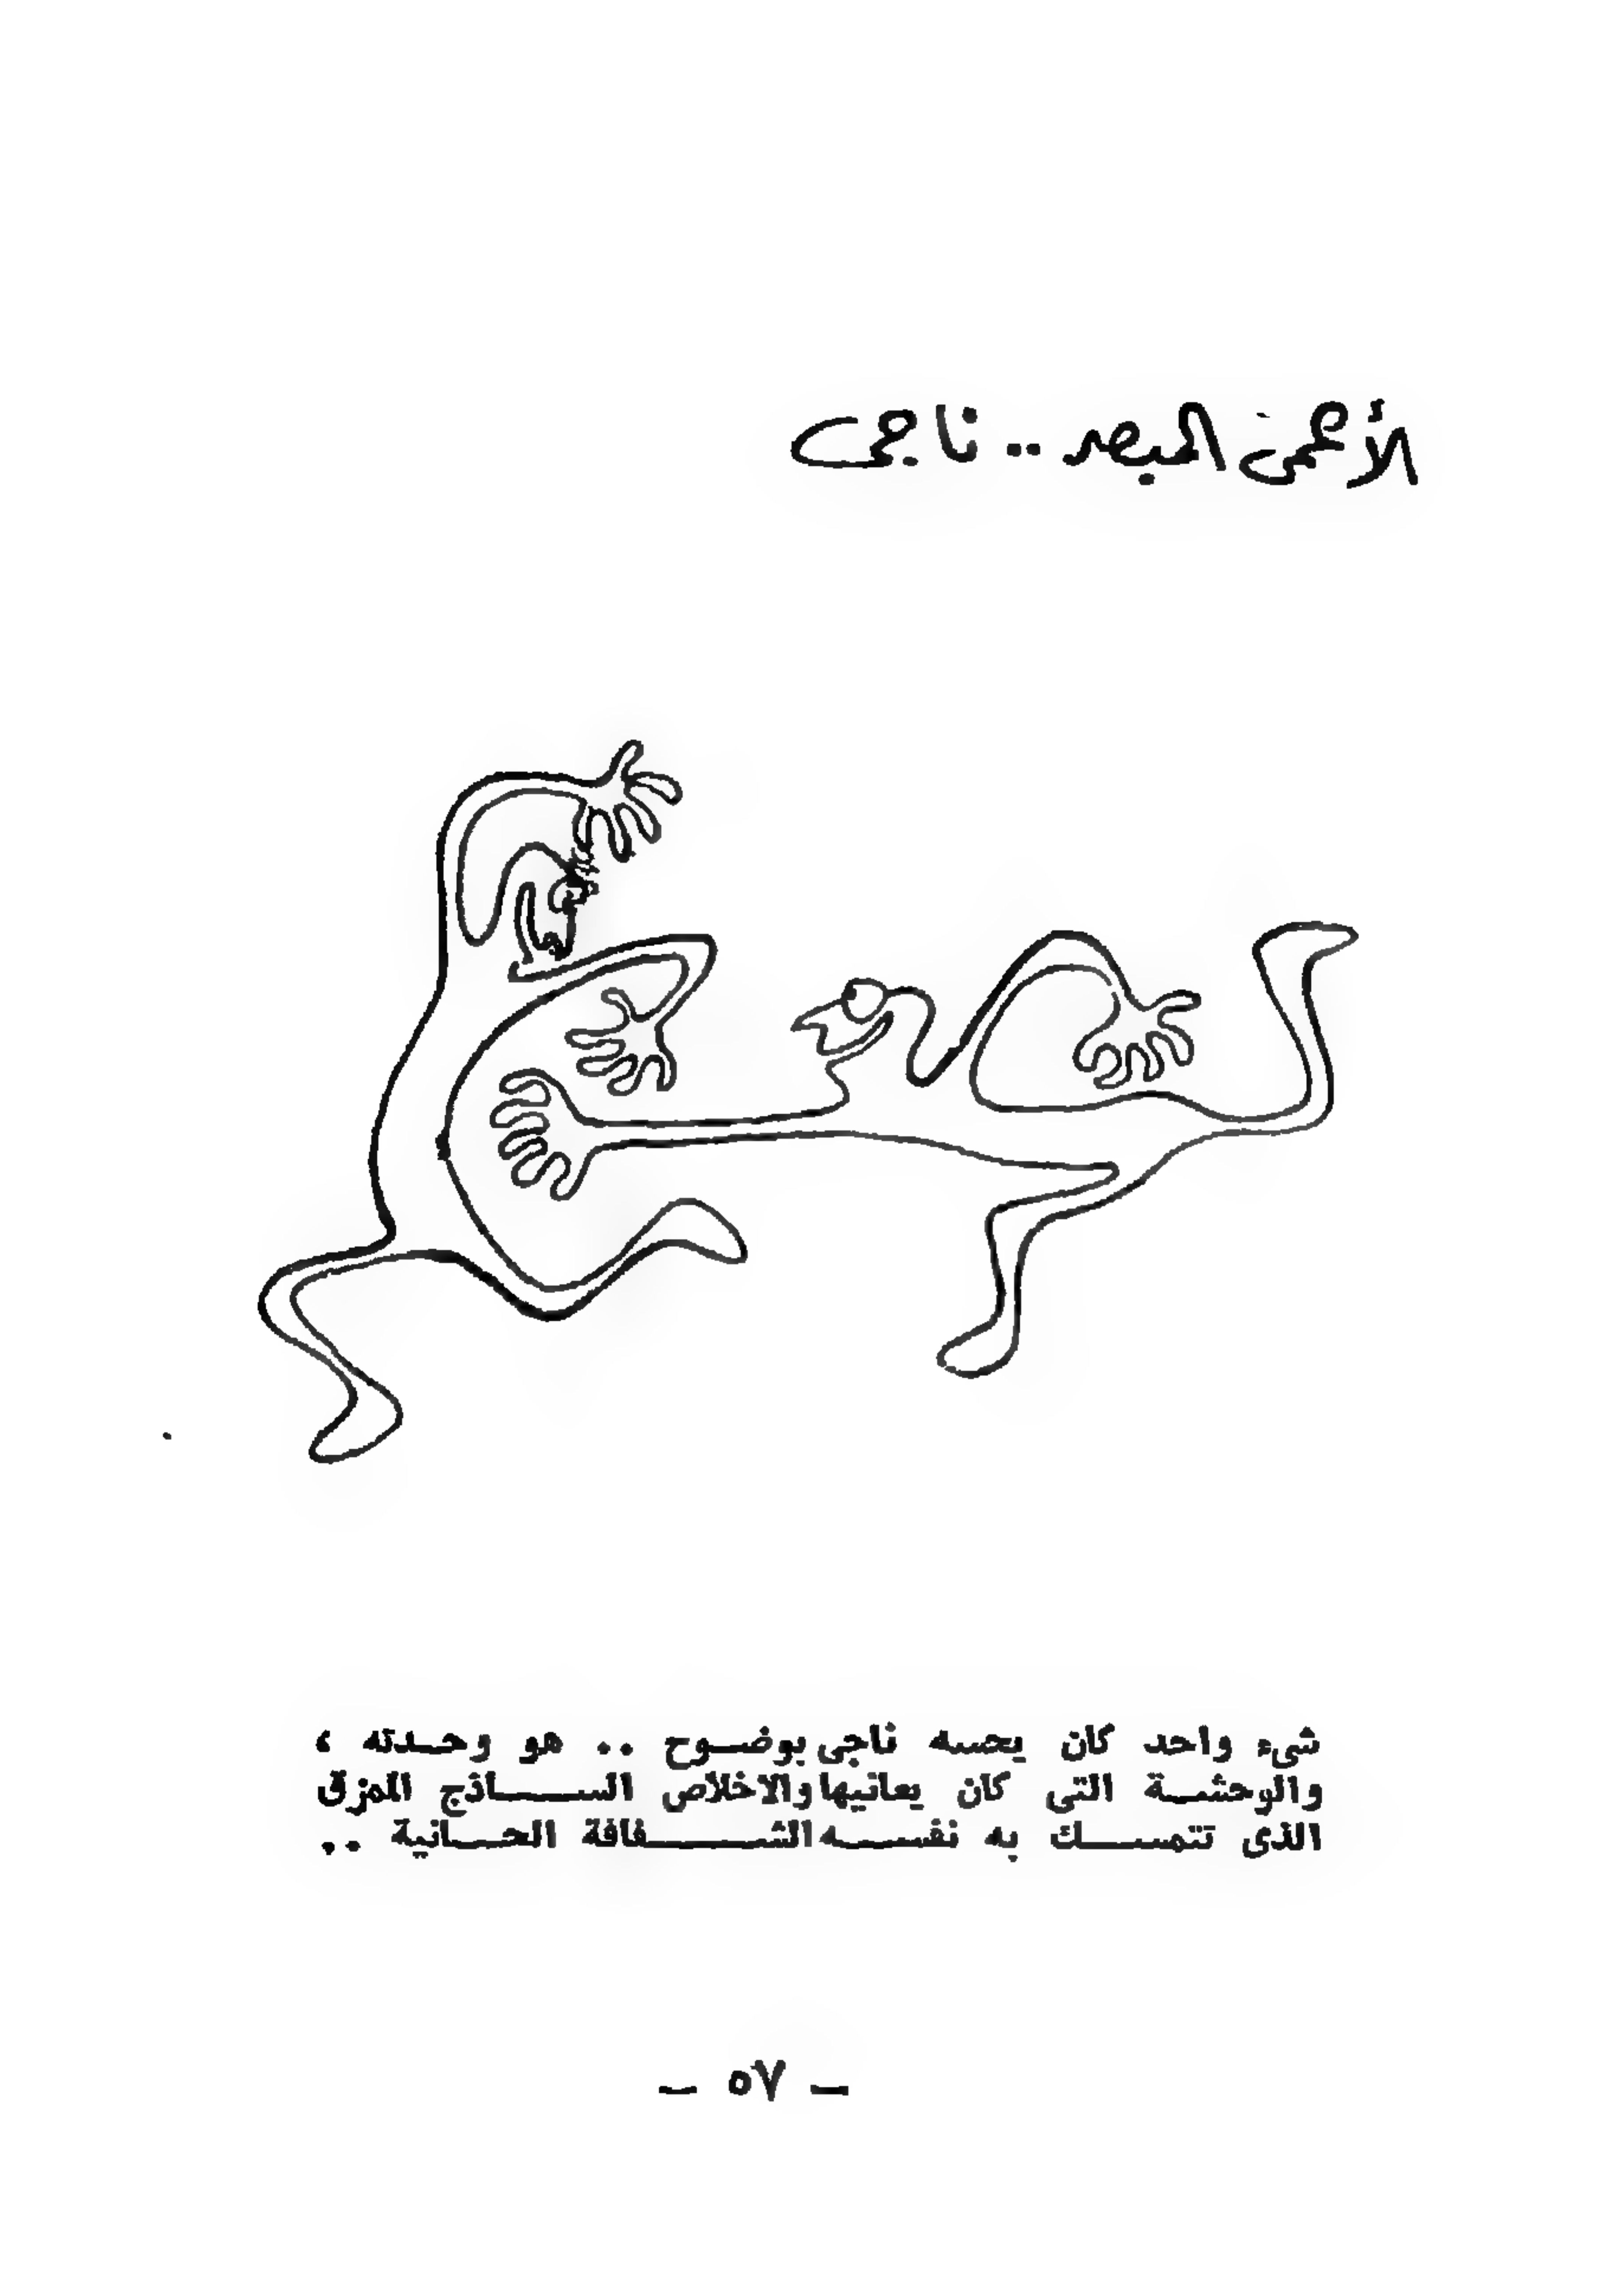 الأعمى المبصر .. ناجى
شىء واحد كان يحسه ناجى بوضوح .. هو وحدته ،
والوحشة التى كان يعانيها والاخلاص الساذج الممزق
الذى تتمسك به نفسه الشفافة الحانية ..
— ٥٧ —